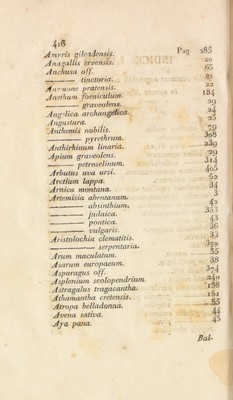 418
Amyris gileadensis. Pag. 285
Anagallis arvensis. 20
Anchusa off. 165
——— tinctoria. 21
Anemone pratensis. 22
Anethum foeniculum. 184
——— graveolens. 29
Angelica archangelica. 24
Angustura. 25
Anthemis nobilis. 79
——— pyrethrum. 308
Anthirhinum linaria. 239
Apium graveolens. 29
——— petroselinum. 314
Arbutus uva ursi. 405
Arctium lappa. 52
Arnica montana. 34
Artemisia abrotanum. 3
——— absinthium. 42
——— judaica. 353
——— pontica. 43
——— vulgaris. 36
Aristolochia clematitis. 33
——— serpentaria. 370
Arum maculatum. 35
Asarum europaeum. 38
Asparagus off. 374
Asplenium scolopendrium. 240
Astragalus tragacantha. 138
Athamantha cretensis. 151
Atropa belladonna. 55
Avena sativa. 44
Aya pana. 45
Bal-